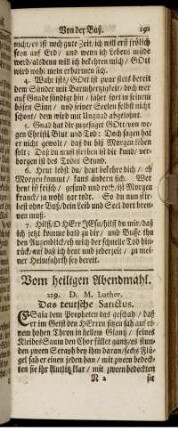 Von der Buß. 191
mahr/ es ist noch gute Zeit/ ich will erst frölich
seyn auf Erd/ und wenn ich Lebens müde
werd/ alsdenn will ich bekehren mich/ GOtt
wird wohl mein erbarmen sich.
4. Wahr ists/ GOtt ist zwar stets bereit
dem Sünder mit Barmhertzigkeit/ doch wer
auf Gnade sündigt hin/ fährt fort in seinem
bösen Sinn/ und seiner Seelen selbst nicht
schont/ dem wird mit Ungnad abgelohnt.
5. Gnad hat dir zugesaget GOtt/ von we-
gen Christi Blut und Tod: Doch sagen hat
er nicht gewolt/ daß du bis Morgen leben
solt: Daß du must sterben ist dir kund/ ver-
borgen ist des Todes Stund.
6. Heut lebst du/ heut bekehre dich/ eh
Morgen kommt/ kans ändern sich. Wer
heut ist frisch/ gesund und roth/ ist Morgen
kranck/ ja wohl gar todt. So du nun stir-
best ohn Buß/ dein Leib und Seel dort bren-
nen muß.
7. Hilff/ O HErr JEsu/ hilff du mir/ daß
ich jetzt komme bald zu dir/ und Busse thu
den Augenblick/ eh mich der schnelle Tod hin-
rück/ auf daß ich heut und jederzeit/ zu mei-
ner Heimfahrth sey bereit.
Vom heiligen Abendmahl.
219. D. M. Luther.
Das teutsche Sanctus.
ESaia dem Propheten das geschah/ daß
er im Geist den HErren sitzen sah auf ei-
nem hohen Thron in hellem Glantz/ seines
Kleides Saum den Chor füllet gantz/ es stun-
den zween Seraph bey ihm daran/ sechs Flü-
gel sah er einen jeden han/ mit zween bedeck-
ten sie ihr Antlitz klar/ mit zween bedeckten
N 2 sie